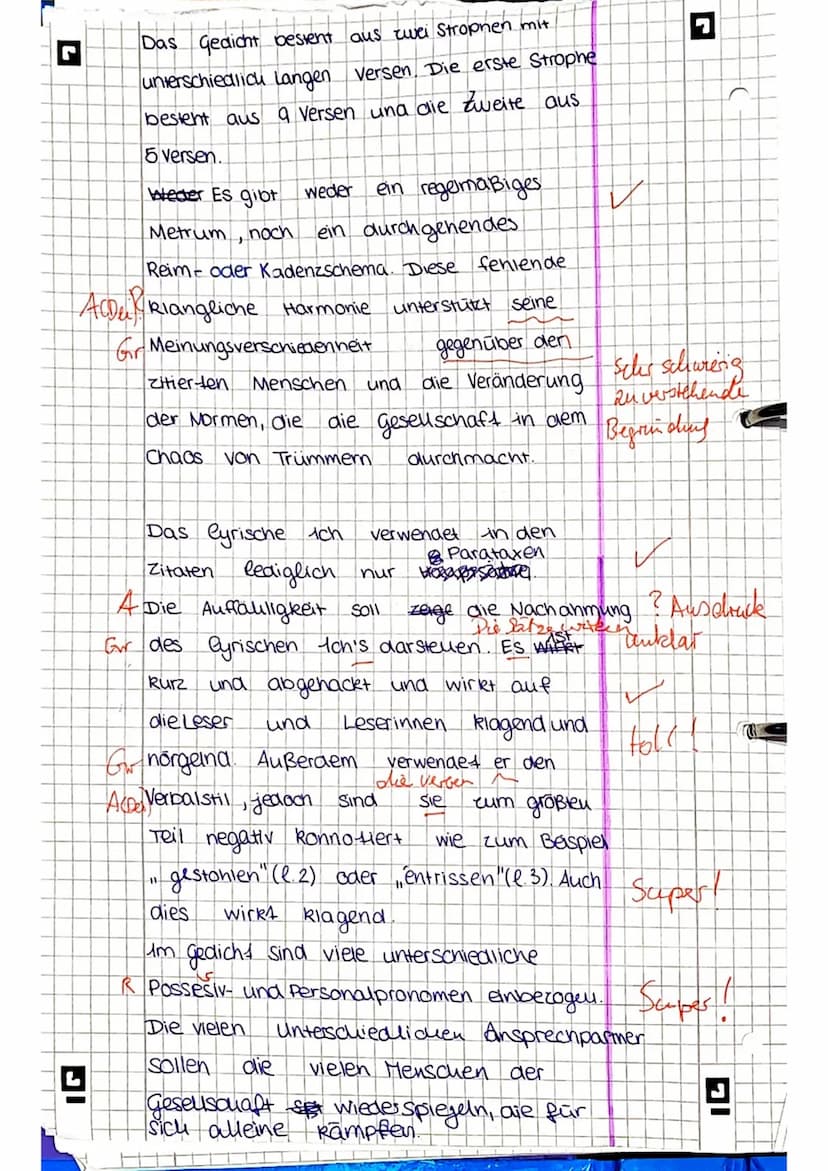 Das Gedicht besteht aus zwei Strophen mit
unterschiedlich langen Versen. Die erste Strophe
besteht aus 9 Versen und die Zweite aus
5 Versen.
Weder Es gibt weder ein regelmäßiges
Metrum, noch ein durchgehendes
Reim- oder Kadenzschema. Diese fehlende
A(Dei)? klangliche Harmonie unterstützt seine
Gr Meinungsverschiedenheit gegenüber den
zitierten Menschen und die Veränderung
Sehr schwierig
zu verstehende
der Normen, die die Gesellschaft in dem
Begründung
Chaos von Trümmern durchmacht.
Das lyrische Ich verwendet in den
Parataxen
Zitaten lediglich nur
A Die Auffälligkeit soll zeige die Nachahmung ? Ausdruck
Die Sätze wirken unklar
ist
Gr des lyrischen Ich's darstellen. Es wirkt
kurz und abgehackt und wirkt auf
die Leser und Leserinnen klagend und
toll!
Gr nörgelnd. Außerdem verwendet er den
die Verben
A(Dei) Verbalstil, jedoch sind sie zum größten
Teil negativ konnotiert wie zum Beispiel
„gestohlen" (l.2) oder „entrissen" (l.3). Auch
Super!
dies wirkt klagend.
Im Gedicht sind viele unterschiedliche
s
R Possesiv- und Personalpronomen einbezogen.
Super!
Die vielen unterschiedlichen Ansprechpartner
sollen die vielen Menschen der
Gesellschaft wiederspiegeln, die für
sich alleine kämpfen.